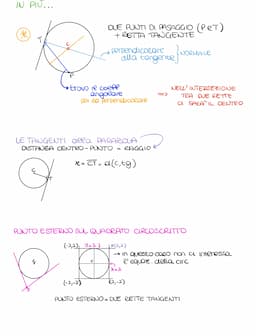 IN PIÙ...
DUE PUNTI DI PASSAGGIO (P e T)
+ RETTA TANGENTE
perpendicolare
alla tangente
NORMALE
T
C
P
trovo il coeff
angolare
NELL'INTERSEZIONE
TRA DUE RETTE
CI SARÀ IL CENTRO
LE TANGENTI
DISTANZA CENTRO-PUNTO = RAGGIO
r = CT = d(C, tg)
PUNTO ESTERNO SUL QUADRATO CIRCOSCRITTO
(-2,2)
(2,2)
→ in questo caso non ci interessa
(-2,-2)
(2,-2)
PUNTO ESTERNO = DUE RETTE TANGENTI